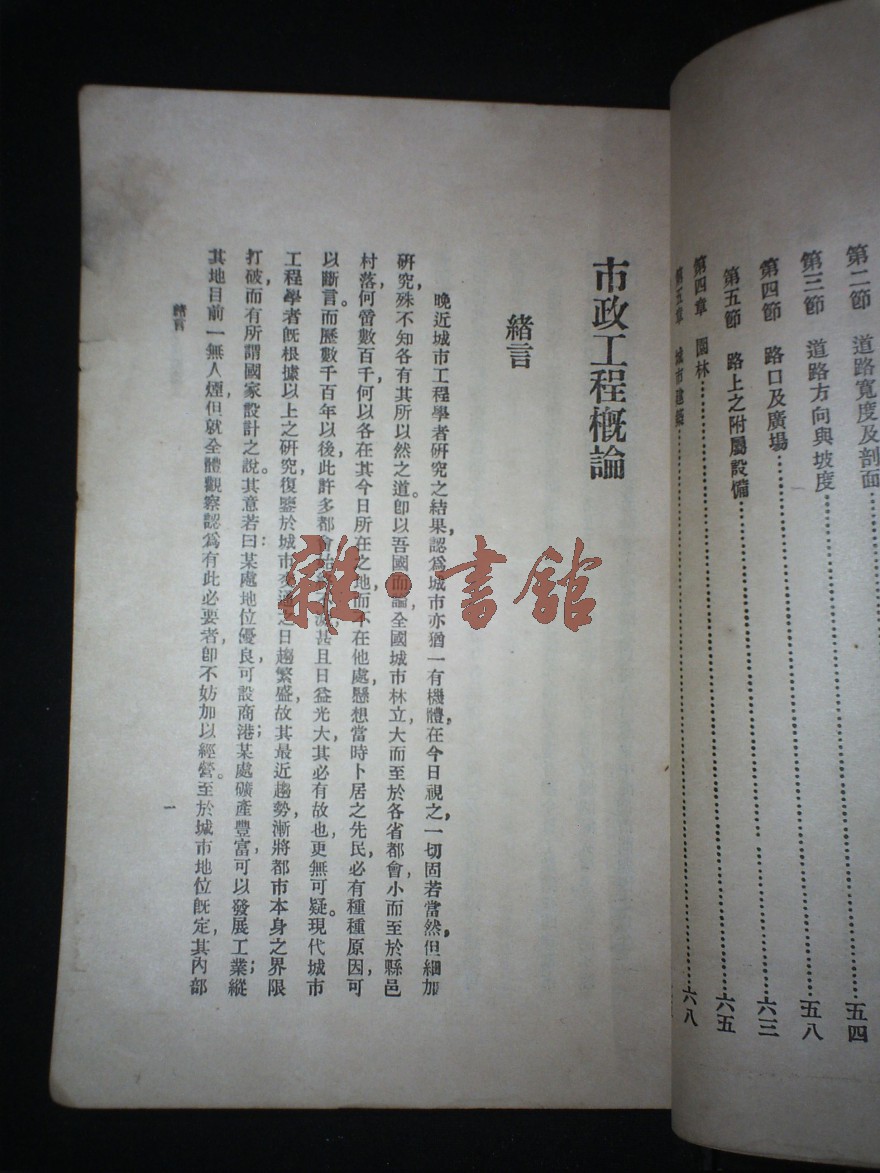 第二節 道路寬度及剖面……五四
第三節 道路方向與坡度……五八
第四節 路口及廣場……六三
第五節 路上之附屬設備……六五
第四章 園林……六八
第五章 城市建築……
市政工程概論
緒言
晚近城市工程學者研究之結果,認爲城市亦猶一有機體,在今日視之,一切固若當然,但細加
研究,殊不知各有其所以然之道。卽以吾國而論,全國城市林立,大而至於各省都會,小而至於縣邑
村落,何啻數百千,何以各在其今日所在之地,而不在他處,懸想當時卜居之先民,必有種種原因,可
以斷言。而歷數千百年以後,此許多都會甚且日益光大,其必有故也,更無可疑。現代城市
工程學者旣根據以上之研究,復鑒於城市交通之日趨繁盛,故其最近趨勢,漸將都市本身之界限
打破,而有所謂國家設計之說。其意若曰:某處地位優良,可設商港;某處礦產豐富,可以發展工業;縱
其地目前一無人煙,但就全體觀察,認爲有此必要者,卽不妨加以經營。至於城市地位旣定,其內部
緒言
一
雜·書館